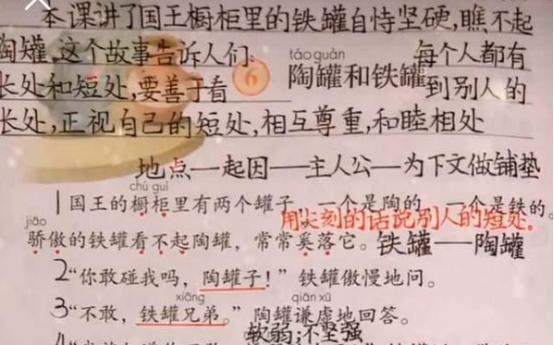 本课讲了国王橱柜里的铁罐自恃坚硬,瞧不起
陶罐,这个故事告诉人们:
每个人都有
táo guàn
6 陶罐和铁罐
长处和短处,要善于看
到别人的
长处,正视自己的短处,相互尊重,和睦相处
地点—起因—主人公—为下文做铺垫
chú guì
1 国王的橱柜里有两个罐子,一个是陶的,一个是铁的。
用尖刻的话说别人的短处。
jiāo
骄傲的铁罐看不起陶罐,常常奚落它。
铁罐——陶罐
2 “你敢碰我吗,陶罐子!”铁罐傲慢地问。
xiōng
qiān xū
3 “不敢,铁罐兄弟。”陶罐谦虚地回答。
软弱;不坚强